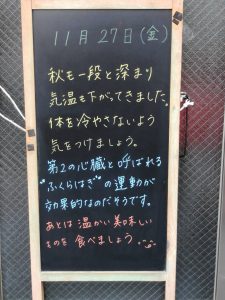 11月27日(金)
秋も一段と深まり
気温も下がってきました。
体を冷やさないよう
気をつけましょう。
第2の心臓と呼ばれる
"ふくらはぎ"の運動が
効果的なのだそうです。
あとは温かい美味しい
ものを食べましょう